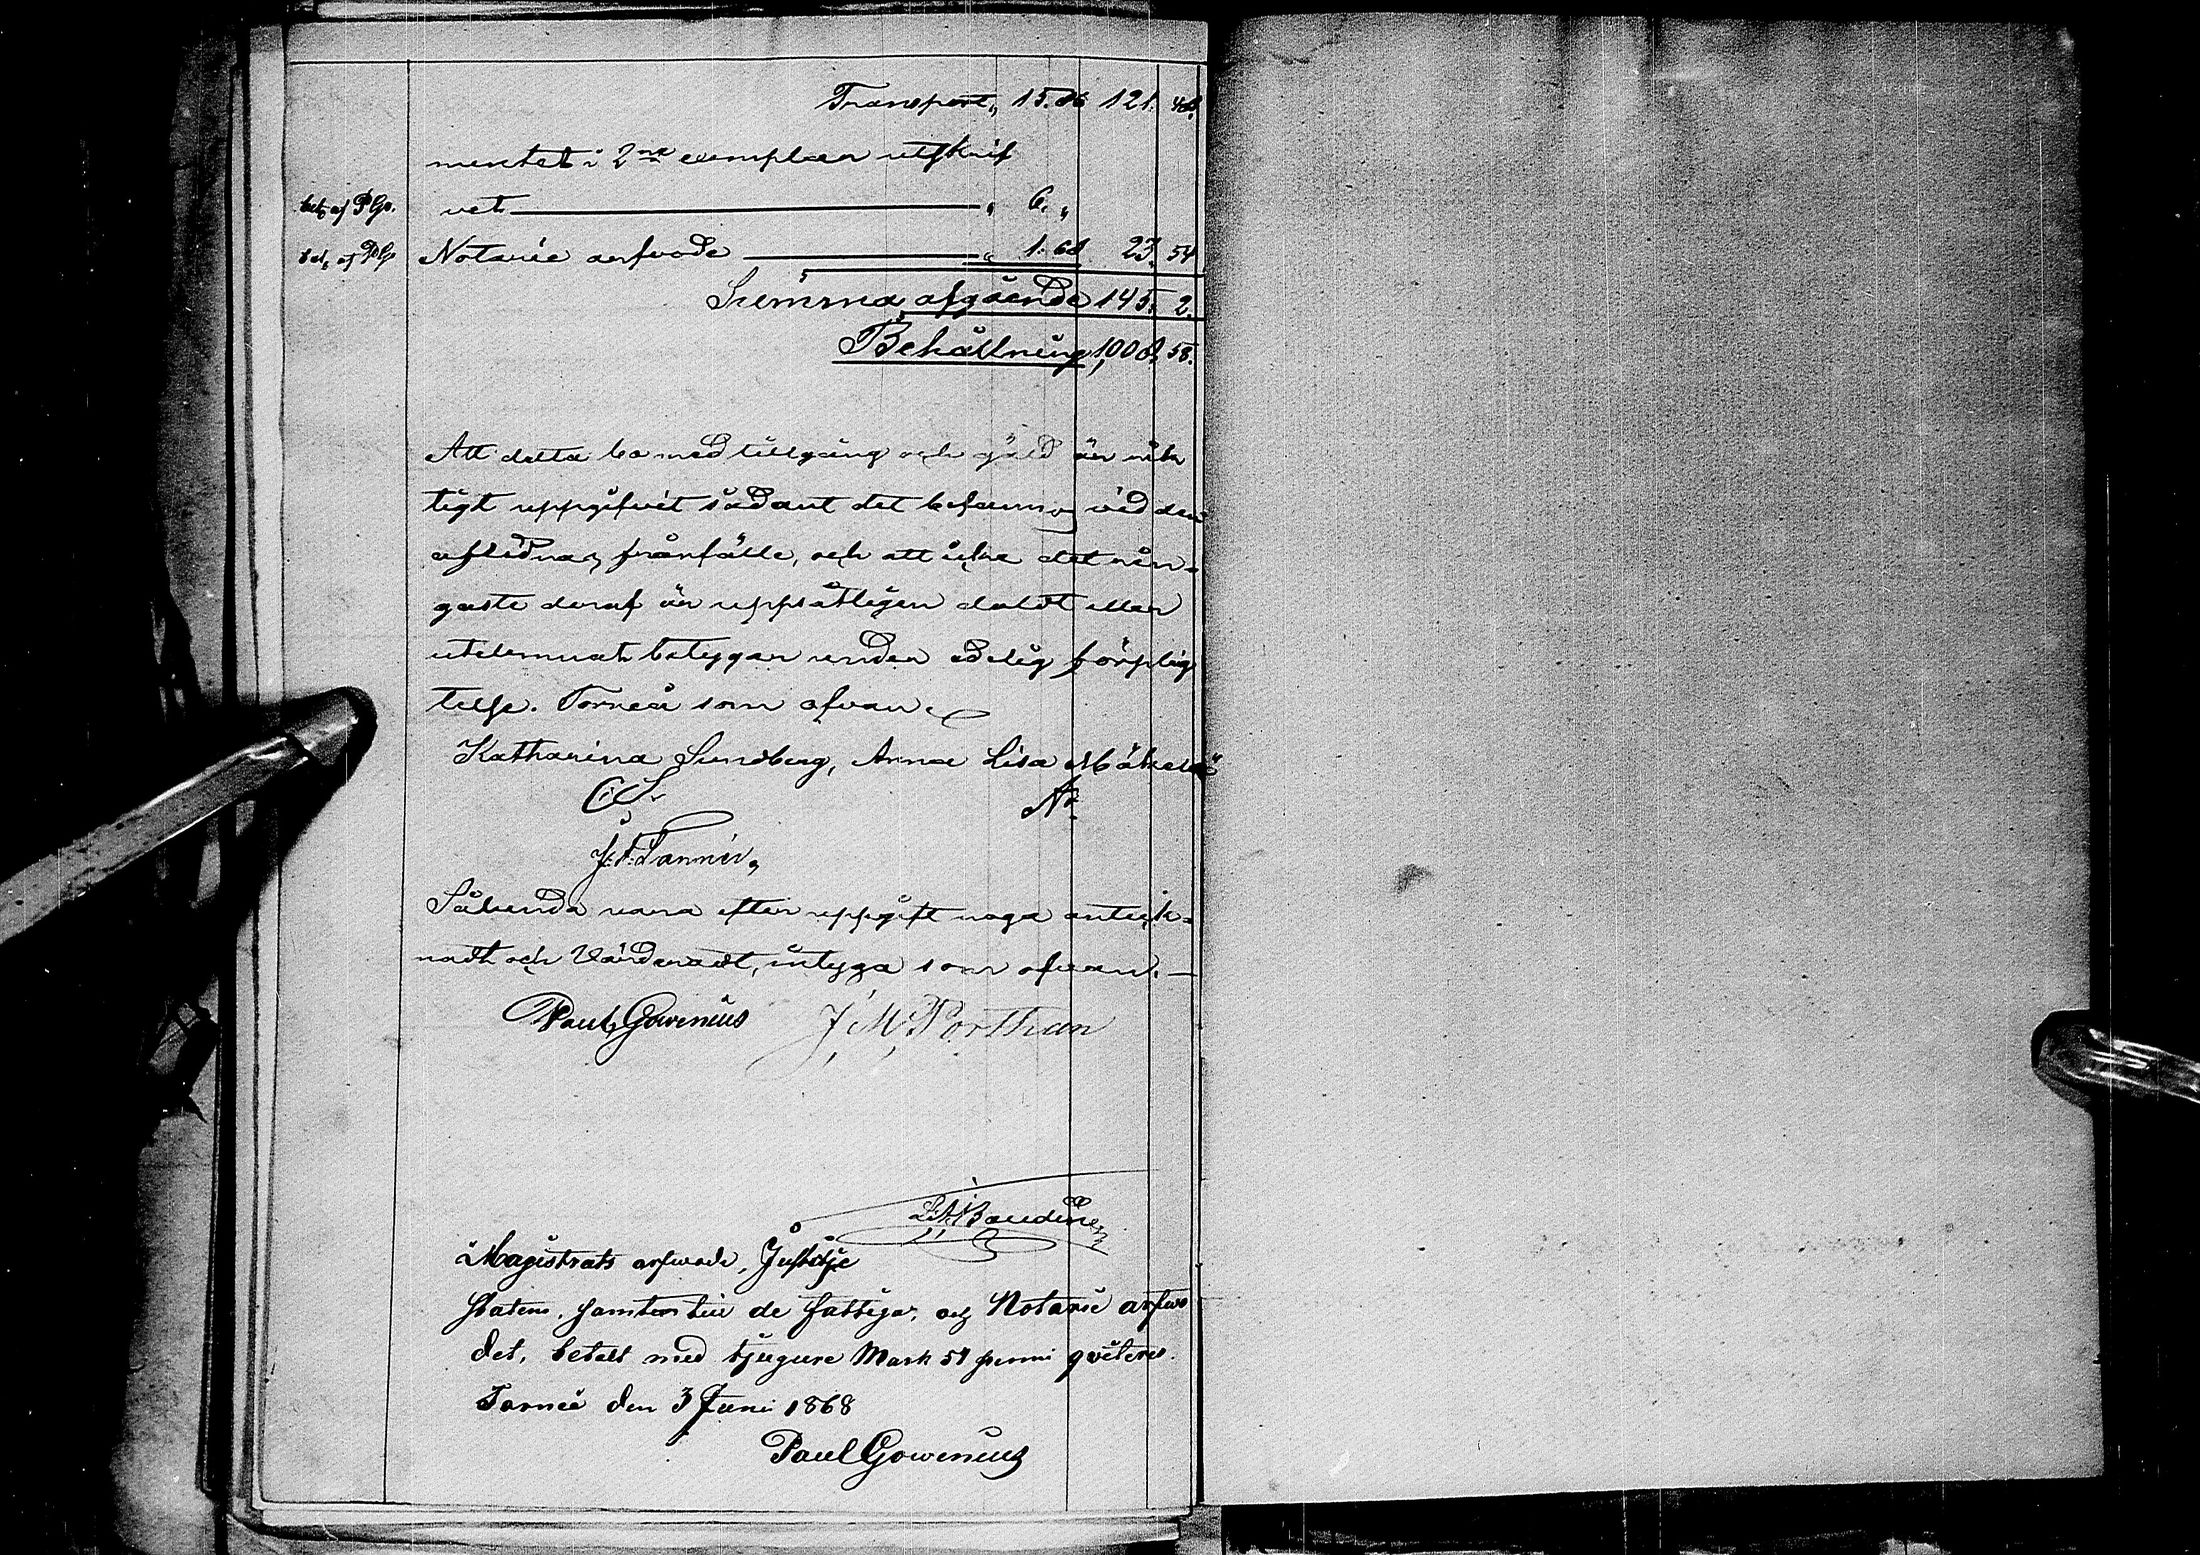 Transport „ 15. 86 121. 48.
mentet i 2ne exemplar utskrif
bet. af PGs. vet „ 6. „
bet. af PGs Notarie arfvode „ 1: 68 23. 54
Summa afgående 145. 2.
Behållning 1,008. 58.
Att detta bo med tillgång och gäld är rik
tigt uppgifvit sådant det befanns vid den
aflidnas frånfälle, och att icke det rin-
gaste deraf är uppsåtligen doldt eller
utelemnadt betygar under edelig förplig
telse. Torneå som ofvan.
Katharina Sundberg, Anna Lisa Mäkelä
C. S.
J. F. Tannér
Sålunda vara efter uppgift noga anteck-
nadt och Värderadt, intyga som ofvan. —
Paul Gowenius J. M. Porthan
Magistrats arfvode, Justitje
staten, samt till de fattiga, och Notarie arfvo
det, betalt med tjugure Mark 54 penni qviteras.
Torneå den 3 Juni 1868
Paul Gowenius